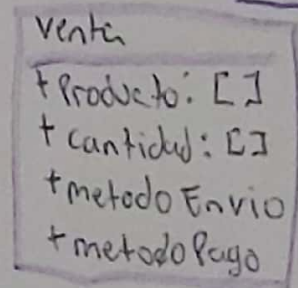 Venta
+ Producto: []
+ Cantidad: []
+ metodo Envio
+ metodo Pago